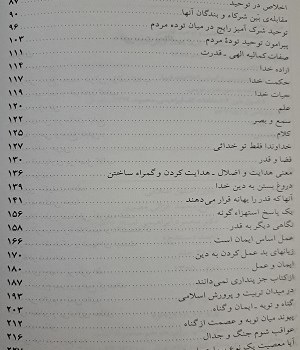 اخلاص در توحید ۸۷
مقابله‌ی بین شرکاء و بندگان آنها ۹۰
توحید شرک آمیز رایج در میان توده مردم ۹۶
پیرامون توحید تودهٔ مردم ۱۰۳
صفات کمالیه الهی - قدرت ۱۱۱
اراده خدا ۱۱۴
حکمت خدا ۱۱۷
حیات خدا ۱۱۹
علم ۱۲۰
سمع و بصر ۱۲۲
کلام ۱۲۵
خداوندا فقط تو خدائی ۱۲۷
قضا و قدر ۱۳۰
معنی هدایت و اضلال - هدایت کردن و گمراه ساختن ۱۳۶
دروغ بستن به دین خدا ۱۳۹
آنها که قدر را بهانه قرار می‌دهند ۱۴۱
یک پاسخ استهزاء گونه ۱۵۶
نگاهی دیگر به قدر ۱۵۸
عمل اساس ایمان است ۱۶۶
زیانهای بد عمل کردن به دین ۱۷۰
ایمان و عمل ۱۸۰
از کتاب جز پنداری نمی‌دانند ۱۸۷
در میدان تربیت و پرورش اسلامی ۱۹۳
گناه و توبه - ایمان و گناه ۲۰۳
پیوند میان توبه و عصمت از گناه ۲۱۲
عواقب شوم جنگ و جدال ۲۱۶
آیا معصیت یک نوع